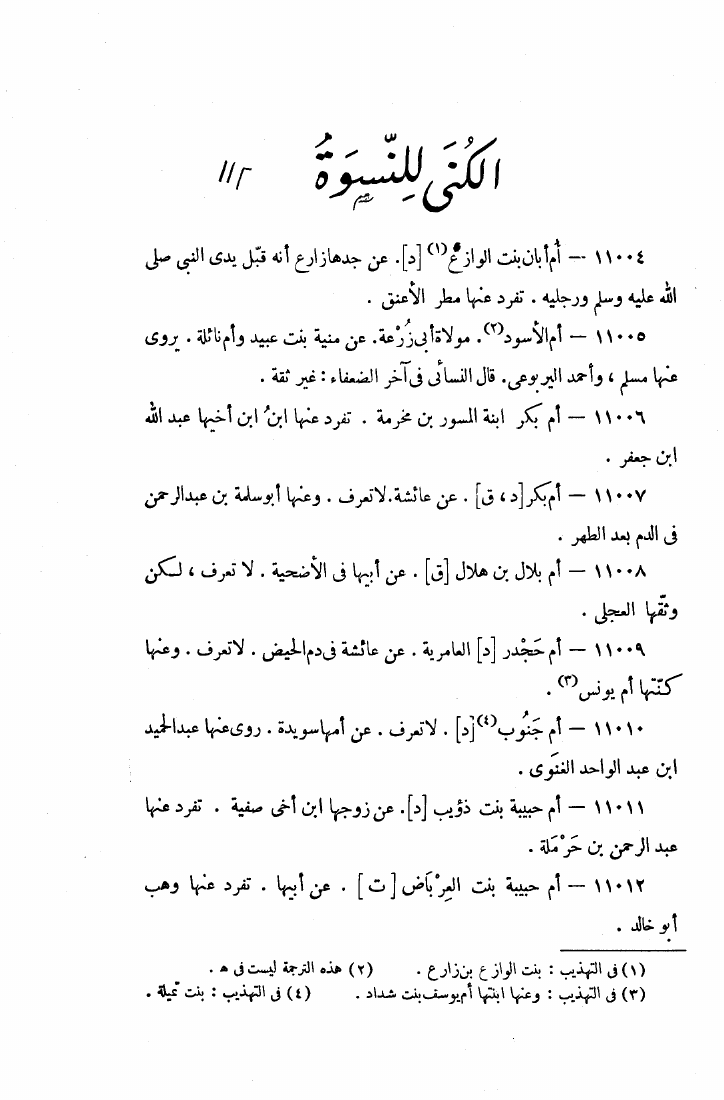 الكُنَى لِلنِّسْوَةُ
١١٠٠٤ – أُم أبان بنت الوازع (١) [د]. عن جدها زارع أنه قبّل يدى النبي صلى
الله عليه وسلم ورجليه . تفرد عنها مطر الأعنق .
١١٠٠٥ – أم الأسود (٢). مولاة أبى زُرْعة. عن منية بنت عبيد وأم نائلة . يروى
عنها مسلم ، وأحمد اليربوعى. قال النسائى فى آخر الضعفاء : غير ثقة .
١١٠٠٦ – أم بكر ابنة المسور بن مخرمة . تفرد عنها ابنُ ابن أخيها عبد الله
ابن جعفر .
١١٠٠٧ – أم بكر [د ، ق] . عن عائشة. لا تعرف . وعنها أبو سلمة بن عبد الرحمن
فى الدم بعد الطهر .
١١٠٠٨ – أم بلال بن هلال [ق] . عن أبيها فى الأضحية . لا تعرف ، لكن
وثّقها العجلى .
١١٠٠٩ – أم جَحْدر [د] العامرية . عن عائشة فى دم الحيض . لا تعرف . وعنها
كنّتها أم يونس (٣) .
١١٠١٠ – أم جَنُوب (٤) [د] . لا تعرف . عن أمها سويدة . روى عنها عبد الحميد
ابن عبد الواحد الغنَوى .
١١٠١١ – أم حبيبة بنت ذؤيب [د]. عن زوجها ابن أخى صفية . تفرد عنها
عبد الرحمن بن حَرْمَلة .
١١٠١٢ – أم حبيبة بنت العِرْبَاض [ت] . عن أبيها . تفرد عنها وهب
أبو خالد .
(١) فى التهذيب : بنت الوازع بن زارع . (٢) هذه الترجمة ليست فى ه .
(٣) فى التهذيب : وعنها ابنتها أم يوسف بنت شداد . (٤) فى التهذيب : بنت نميلة .